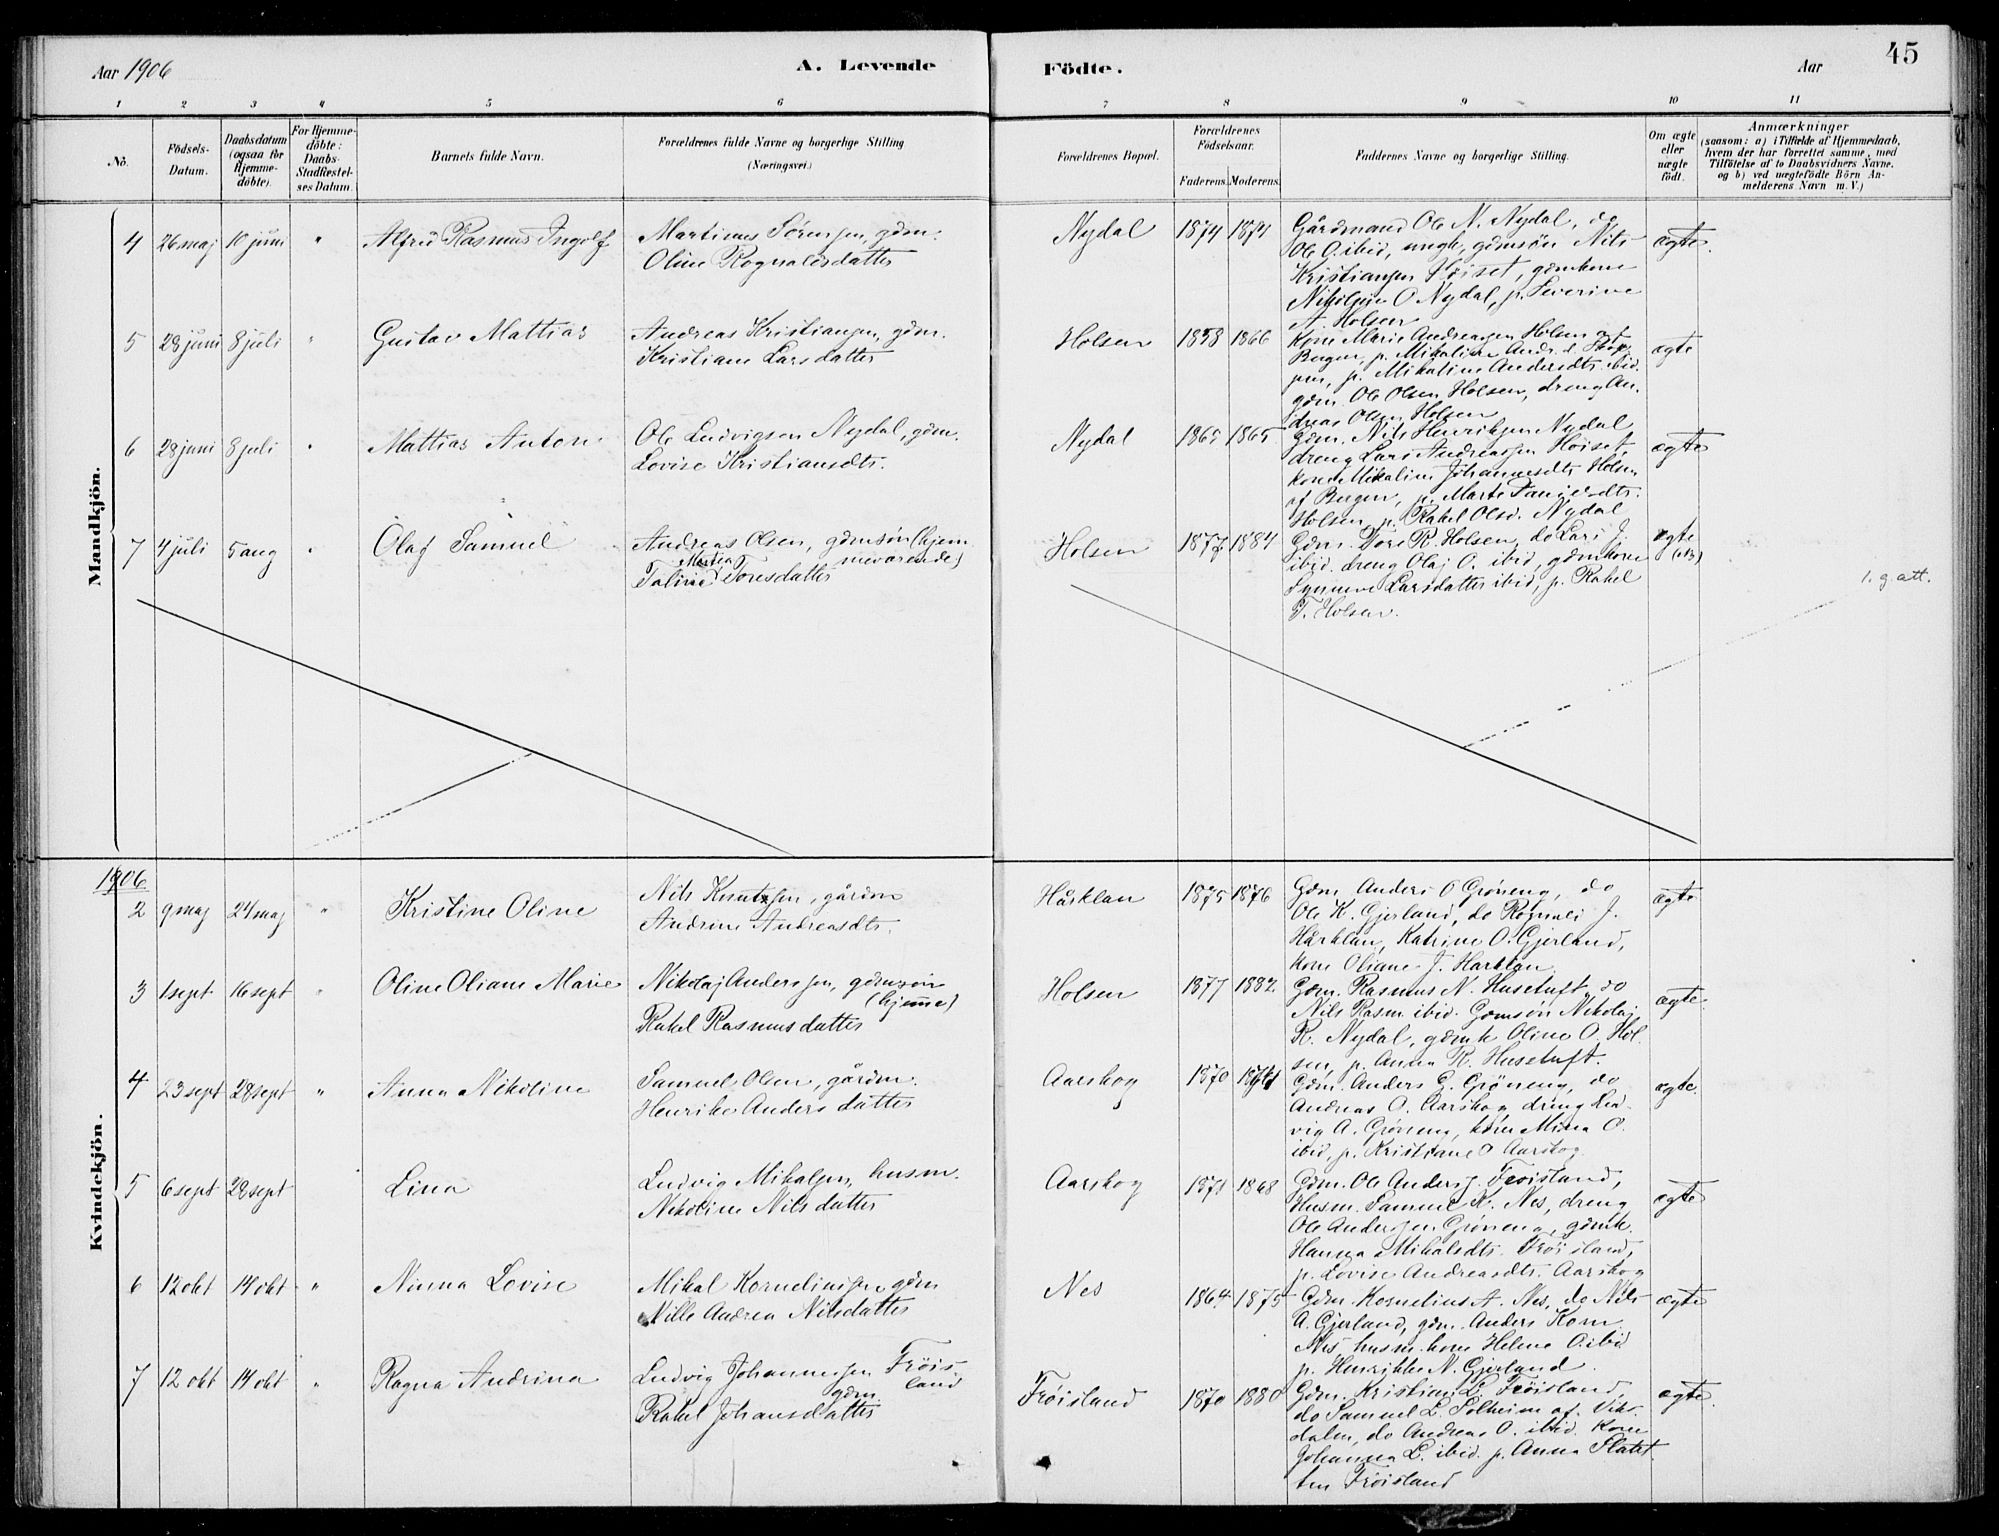 Aar 1906 A. Levende Födte. Aar 45
1 2 3 4 5 6 7 8 9 10 11
No.
Födsels-
Datum.
Daabsdatum
(ogsaa for
Hjemme-
döbte).
For Hjemme-
döbte:
Daabs-
Stadfæstel-
ses Datum.
Barnets fulde Navn.
Forældrenes fulde Navne og borgerlige Stilling
(Næringsvei.)
Forældrenes Bopæl.
Forældrenes
Födselsaar.
Faderens. Moderens.
Faddernes Navne og borgerlige Stilling.
Om ægte
eller
uægte
födt.
Anmærkninger
(saasom: a) i Tilfælde af Hjemmedaab,
hvem der har forrettet samme, med
Tilföielse af to Daabsvidners Navne.
og b) ved uægtefödte Börn An-
melderens Navn m. V.)
Mandkjön.
4 26 maj 10 juni " Alfred Rasmus Ingolf
Martinus Sørensen, gdm.
Oline Rognaldsdatter
Nydal 1874 1871
Gårdmand Ole N. Nydal, do
Ole O. ibid, ungk, gdmsøn Nils
Kristiansen Høiset, gdmkone
Nikolijne O Nydal, p. Severine
A. Holsen
ægte.
5 28 juni 8 juli " Gustav Mattias
Andreas Kristiansen, gdm.
Kristiane Larsdatter
Holsen 1858 1866
Kone Marie Andreasen Holsen af
Bergen, p. Mikaline Andr. d.
p. Mikaline Andersdtr. ibid.
gdm. Ole Olsen Holsen, dreng An-
dreas Olsen Holsen
ægte
6 28 juni 8 juli " Mattias Anton
Ole Ludvigsen Nydal, gdm.
Lovise Kristiansdtr.
Nydal 1865 1865
Gdm. Nils Henriksen Nydal
dreng Lars Andreassen Høiset,
kone Mikaline Johannesdtr Holsen
af Bergen, p. Marte Danielsdtr.
Holsen, p. Rakel Olsd. Nydal
ægte
7 4 juli 5 aug " Olaf Samuel
Andreas Olsen, gdmsøn (hjem
meværende)
Taline Martea Toresdatter
Holsen 1877 1884
Gdm. Tore R. Holsen, do Lars J.
ibid. dreng Olaj O. ibid, gdmkone
Synneve Larsdatter ibid, p. Rakel
T. Holsen.
ægte
1. g. att.
1906
Kvindekjön.
2 9 maj 24 maj " Kristine Oline
Nils Knutsen, gårdm
Andrine Andreasdtr.
Hårklau 1875 1876
Gdm Anders O Grøneng, do
Ole K. Gjerland, do Rognald J.
Hårklau, Katrine O. Gjerland,
kone Oliane J. Harklau
ægte
3 1 sept 16 sept " Oline Oliane Marie
Nikolaj Anderssen, gdmsøn
(hjemme)
Rakel Rasmusdatter
Holsen 1877 1882.
Gdm. Rasmus N. Husetuft, do
Nils Rasm. ibid. Gdmsøn Nikolaj
R. Nydal, gdmk Oline O. Hol-
sen, p. Anna R. Husetuft.
ægte.
4 23 sept 28 sept " Anna Nikoline
Samuel Olsen, gårdm.
Henrike Andersdatter
Aarskog 1870
Gdm. Anders G. Grøneng, do
Andreas O. Aarskog dreng Lud-
vig A. Grøneng, kone Mina O.
ibid, p. Kristiane O Aarskog
ægte.
5 6 sept 28 sept Lina
Ludvig Mikalsen, husm.
Nikoline Nilsdatter
Aarskog 1871 1868
Gdm. Ole Anders J. Frøisland,
Husm. Samuel K. Nes, dreng
Ole Andersen Grøneng, gdmk.
Hanna Mikalsdtr. Frøisland,
p. Lovise Andreasdtr. Aarskog
ægte
6 12 okt 14 okt " Ninna Lovise
Mikal Korneliussen gdm
Nille Andrea Nilsdatter
Nes 1864 1875
Gdm. Kornelius A. Nes, do Nils
A. Gjerland, gdm. Anders Korn.
Nes, husm. kone Helene O. ibid
p. Henrikke N. Gjerland
ægte
7 12 okt 14 okt " Ragna Andrina
Ludvig Johannessen Frøis-
land
gdm
Rakel Johansdatter
Frøisland 1870 1880
Gdm. Kristian L. Frøisland,
do Samuel L. Solheim af Viks-
dalen, do Andreas O. ibid. Kone
Johanna L. ibid. p. Anna
Frøisland
ægte.